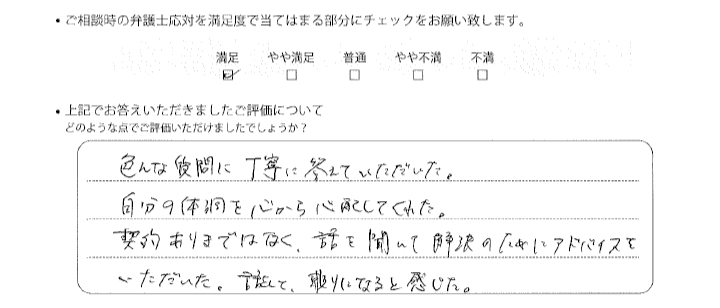 ・ご相談時の弁護士応対を満足度で当てはまる部分にチェックをお願い致します。
満足 やや満足 普通 やや不満 不満
☑ □ □ □ □
・上記でお答えいただきましたご評価について
どのような点でご評価いただけましたでしょうか？
色んな質問に丁寧に答えていただいた。
自分の体調を心から心配してくれた。
契約ありきではなく、話を聞いて解決のためにアドバイスを
いただいた。話して、頼りになると感じた。